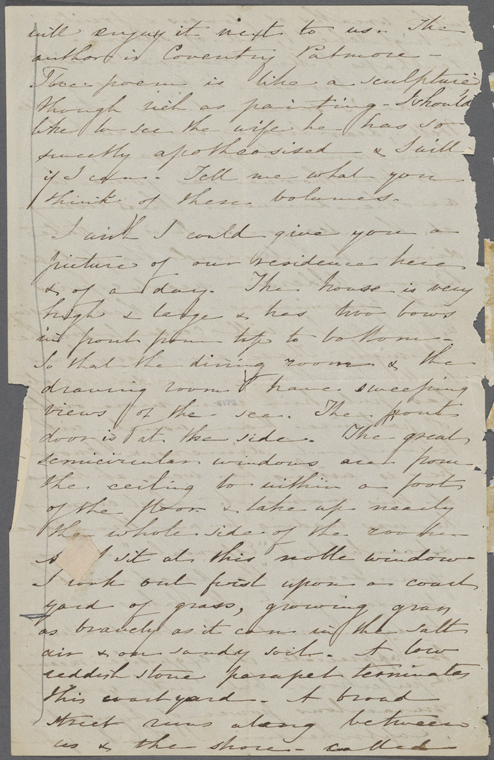 will enjoy it next to us. The
author is Coventry Patmore -
The poem is like a sculpture
though rich as painting - I should
like to see the wife he has so
sweetly apotheosised & I will
if I can. Tell me what you
think of these volumes.
I wish I could give you a
picture of our residence here
& of a day. The house is very
high & large & has two bows
in front from top to bottom -
So that the dining room & the
drawing room have sweeping
views of the sea. The front
door is at the side. The great
semicircular windows are from
the ceiling to within a foot
of the floor & take up nearly
the whole side of the room -
As I sit at this noble window
I look out first upon a court
yard of grass, growing gray
as bravely as it can in the salt
air & on sandy soil. A low
reddish stone parapet terminates
this courtyard - A broad
street runs along between
us & the shore - called